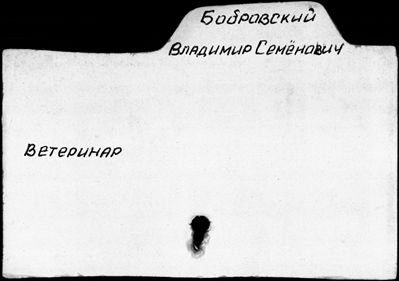 Бобровский
Владимир Семёнович
Ветеринар